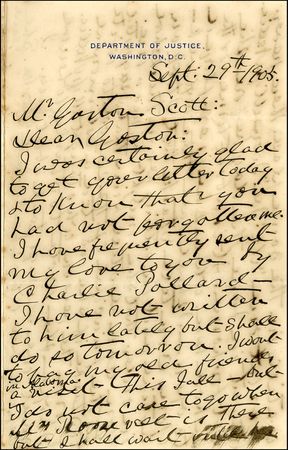 DEPARTMENT OF JUSTICE,
WASHINGTON, D.C.
Sept. 29th 1905.
Mr Gaston Scott:
Dear Gaston:
I was certainly glad
to get your letter today
& to know that you
had not forgotten me.
I have frequently sent
my love to you by
Charlie Pollard
I have not written
to him lately but shall
do so tomorrow. I want
to pay my old friends
in Alabama
a visit this fall but
I do not care to go when
Mr Roosevelt is there
but I shall wait